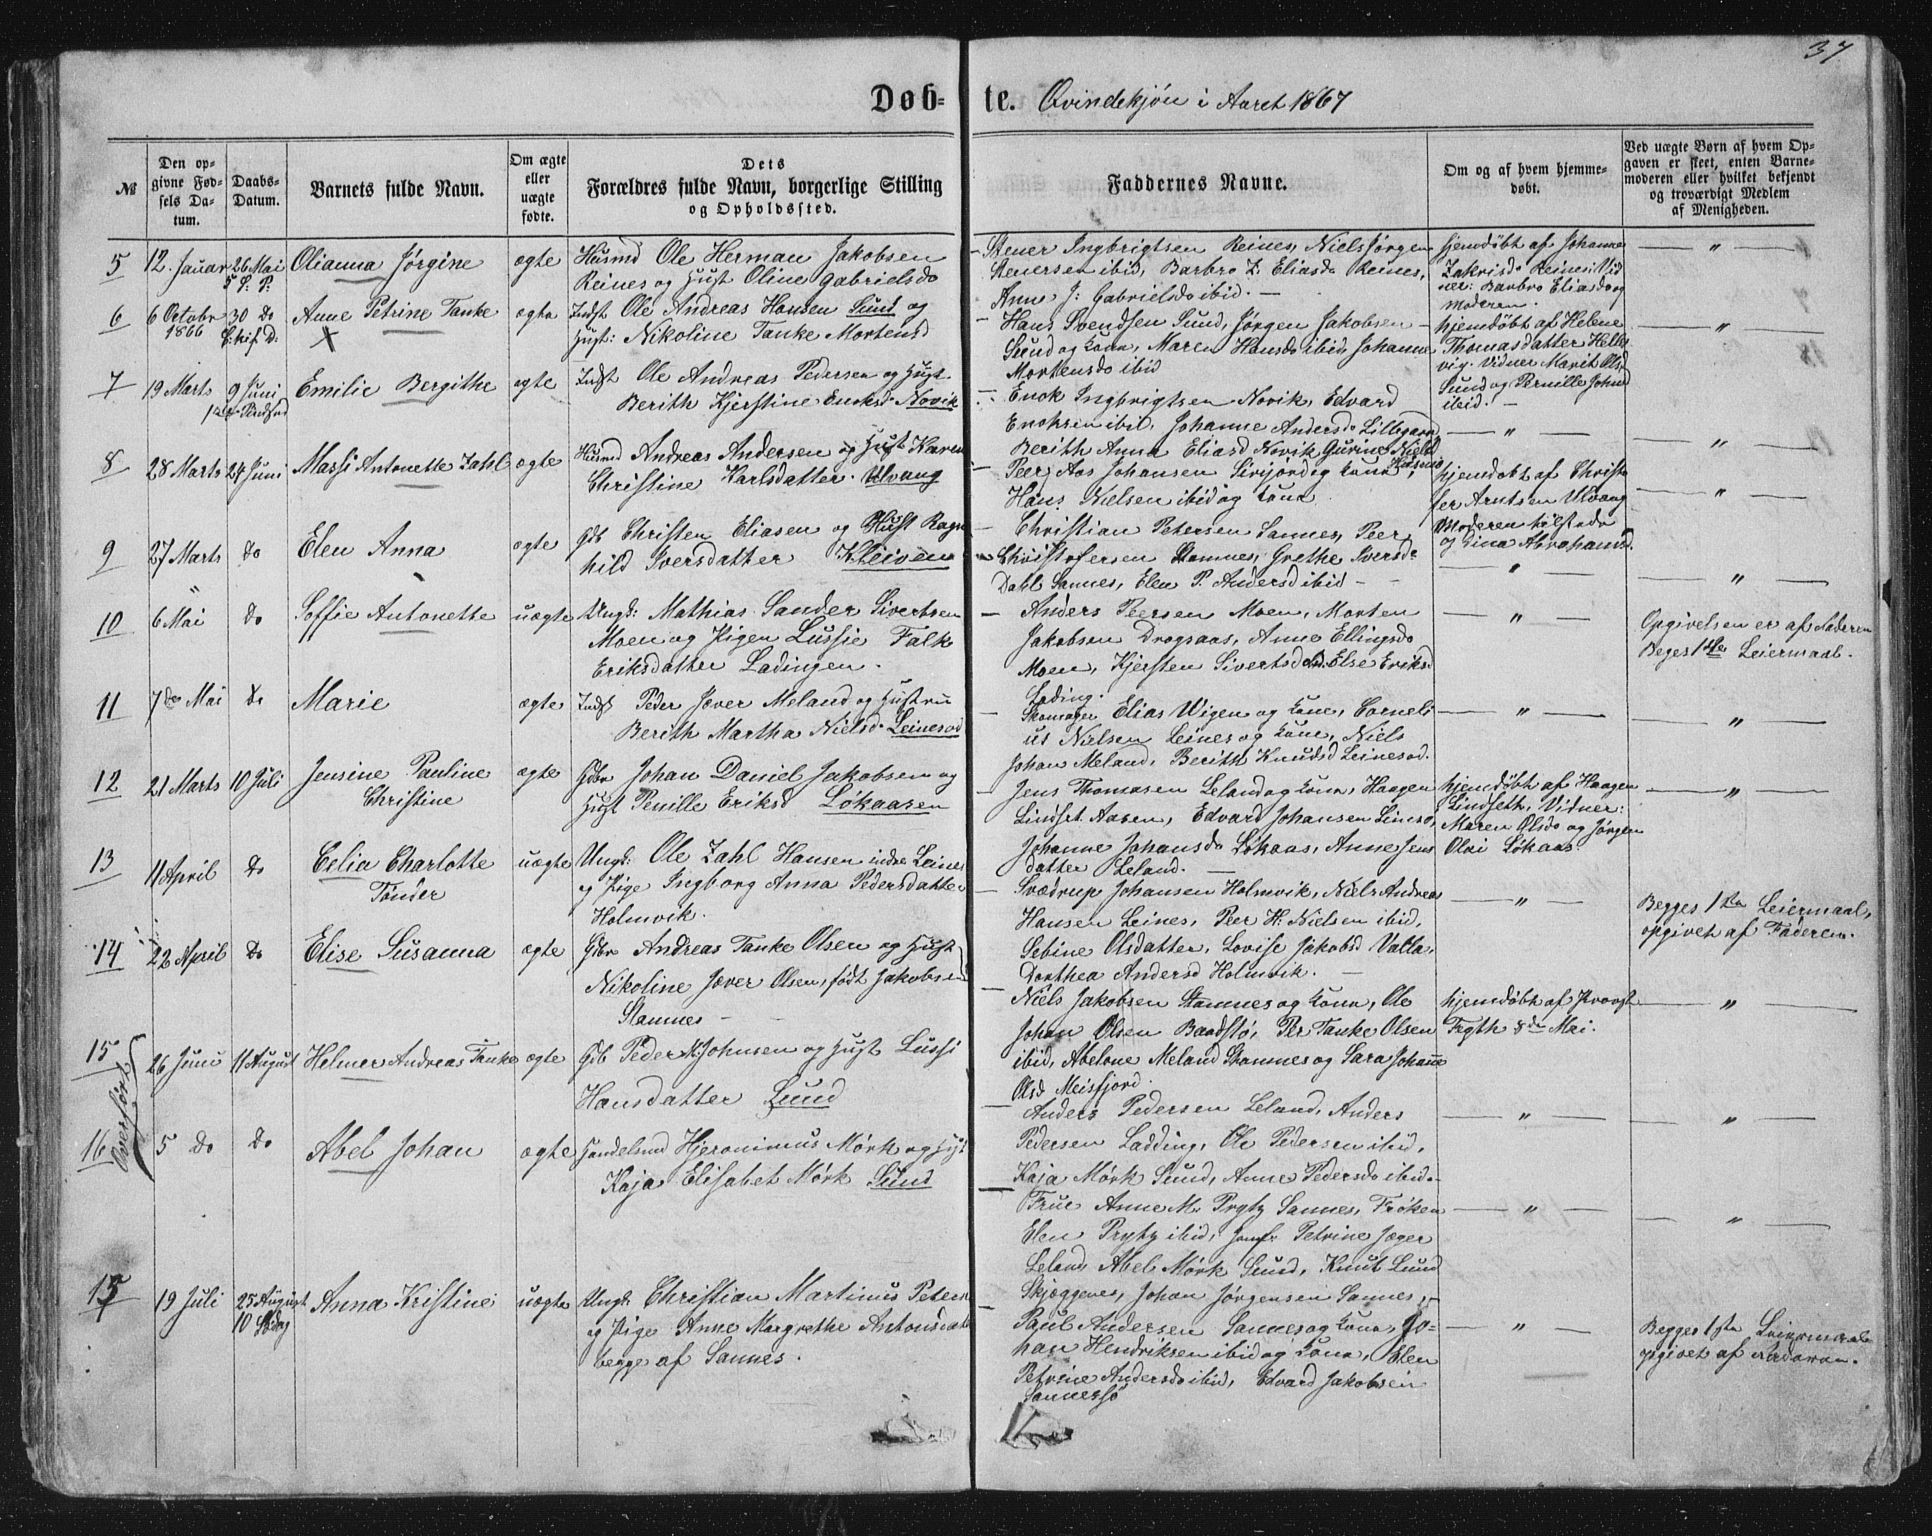 37
Døb- te. Qvindekjön i Aaret 1867
№
Den opgivne Fødsels Datum.
Daabs-Datum.
Barnets fulde Navn.
Om ægte eller uægte fødte.
Dets Forældres fulde Navn, borgerlige Stilling og Opholdssted.
Faddernes Navne.
Om og af hvem hjemmedøbt.
Ved uægte Børn af hvem Opgaven er skeet, enten Barnemoderen eller hvilket bekjendt og troværdigt Medlem af Menigheden.
5 12. Januar 26 Mai 5 S. P. Olianna Jørgine ægte Husmd Ole Herman Jakobsen
Reines og Hust Oline Gabrielsdo
Stener Ingbrigtsen Reines, Niels Jørgen
Stenersen ibid, Barbro Z. Eliasdo Reines,
Anne J: Gabrielsdo ibid. —
hjemdøbt af Johanne
Zakrisdo Reines: Vid
ner: Barbro Eliasdo og
moderen.
— " —
6 6 Octobr 1866 30 do Anne Petrine Tanke ægte Indst Ole Andreas Hansen Sund og
Hust: Nikoline Tanke Mortensd
Hans Svendsen Sund, Jørgen Jakobsen
Sund og kone, Maren Hansdo ibid, Johanne
Mortensdo ibid
hjemdøbt af Helene
Thomasdatter Hells
vig. Vidner Marit Olsd
Sund og Pernille Johnd
ibid. —
— " —
7 19 Marts 9 Juni Emilie Bergithe ægte Indst Ole Andreas Pedersen og Hust
Berith Kjerstine Enoksd Novik
Enok Ingbrigtsen Novik, Edvard
Enoksen ibid, Johanne Andersdo Lillegaard
Berith Anna Eliasd Novik Gurine Nielsd
— " —
— " —
8 28 Marts 24 Juni Massi Antonette Zahl ægte Husmd Andreas Andersen og Hust Karen
Christine Karlsdatter. Ulvang
Peer Aas Johansen Sivijord og kone,
Hans Nielsen ibid og kone
hjemdøbt af Christo
fer Arntsen Ulvang
Moderen tilstede
og Lina Abrahamsd.
— " —
9 27 Marts do Elen Anna ægte Gb Christen Eliasen og Hust Ragn
hild Iversdatter Kleiven
Christian Petersen Sannes, Peer
Christofersen Stamnes, Grethe Iversd
Dahl Sannes, Elen P. Andersd ibid —
— " —
— " —
10 6 Mai do Soffie Antonette uægte Ungd: Mathias Sander Sivertsen
Moen og Pigen Lussie Falk
Eriksdatter Ladingen.
Anders Peersen Moen, Morten
Jakobsen Dragsaas, Anne Ellingsdo
Moen, Kjersten Sivertsd Else Eriksd
Lading.
— " —
Opgivelsen er af Faderen
Beges 1ste Leiermaal.
11 7de Mai do Marie ægte Indst Peder Jæver Meland og Hustru
Berith Martha Nielsd Leinesod
Skomager Elias Wigen og kone, Corneli
us Nielsen Leines og kone, Niels
Johan Meland, Berith Knudsd Leinesod.
— " —
— " —
12 21 Marts 10 Juli Jensine Pauline
Christine
ægte Gbr Johan Daniel Jakobsen og
Hust Penille Eriksd Løkaasen
Jens Thomasen Leland og kone, Haagen
Lindset Aasen, Edvard Johansen Linesø,
Johanne Johansdo Løkaas, Anne Jens
datter Leland. —
hjemdøbt af Haagen
Lindseth, Vidner:
Maren Olsdo og Jørgen
Olai Løkaas.
— " —
13 11 April do Celia Charlotte
Tønder
uægte Ungd: Ole Zahl Hansen indre Leines
og Pige Ingborg Anna Pedersdatter
Holmvik.
Svædrup Johansen Holmvik, Niels Andreas
Hansen Leines, Peer H. Nielsen ibid,
Sebine Olsdatter, Lovise Jakobsd Valla,
Dorthea Andersd Holmvik. —
— " —
Begges 1ste Leiermaal,
opgivet af Faderen.
14 22 April do Elise Susanna ægte Gbr Andreas Tanke Olsen og Hust
Nikoline Jæver Olsen, født Jakobsen
Stamnes —
Niels Jakobsen Stamnes og kone, Ole
Johan Olsen Baadstø, Per Tanke Olsen
ibid, Abelone Meland Stamnes og Sara Johanne
Olsd Meisfjord.
hjemdøbt af Provst
Fegth 8de Mai.
— " —
Overført
15 26 Juni 11 August Helmer Andreas Tanke ægte Gb Peder Johnsen og Hust Lussi
Hansdatter Lund
Anders Pedersen Leland, Anders
Pedersen Ladding, Ole Pedersen ibid,
Kaja Mørk Sund, Anne Pedersdo ibid.
— " —
— " —
16 5 do do Abel Johan ægte Handelsmd Hjeronimus Mørk og Hust
Kaja Elisabet Mørk Sund
Frue Anne M. Prytz Sannes, Frøken
Elen Prytz ibid, Jomfr Petrine Jæger
Leland, Abel Mørk Sund, Knut Lund
Skjæggenes, Johan Jørgensen Sannes.
— " —
— " —
15 19 Juli 25 August 10 Søndag Anna Kristine uægte Ungk. Christian Martinus Peters
og Pige Anne Margrethe Antonsdat
begge af Sannes.
Paul Andersen Sannes og kone, Jo-
han Hendriksen ibid og kone, Elen
Petrine Andersdo ibid, Edvard Jakobsen
Sannessø
— " —
Begges 1ste Leiermaal
opgivet af Faderen.